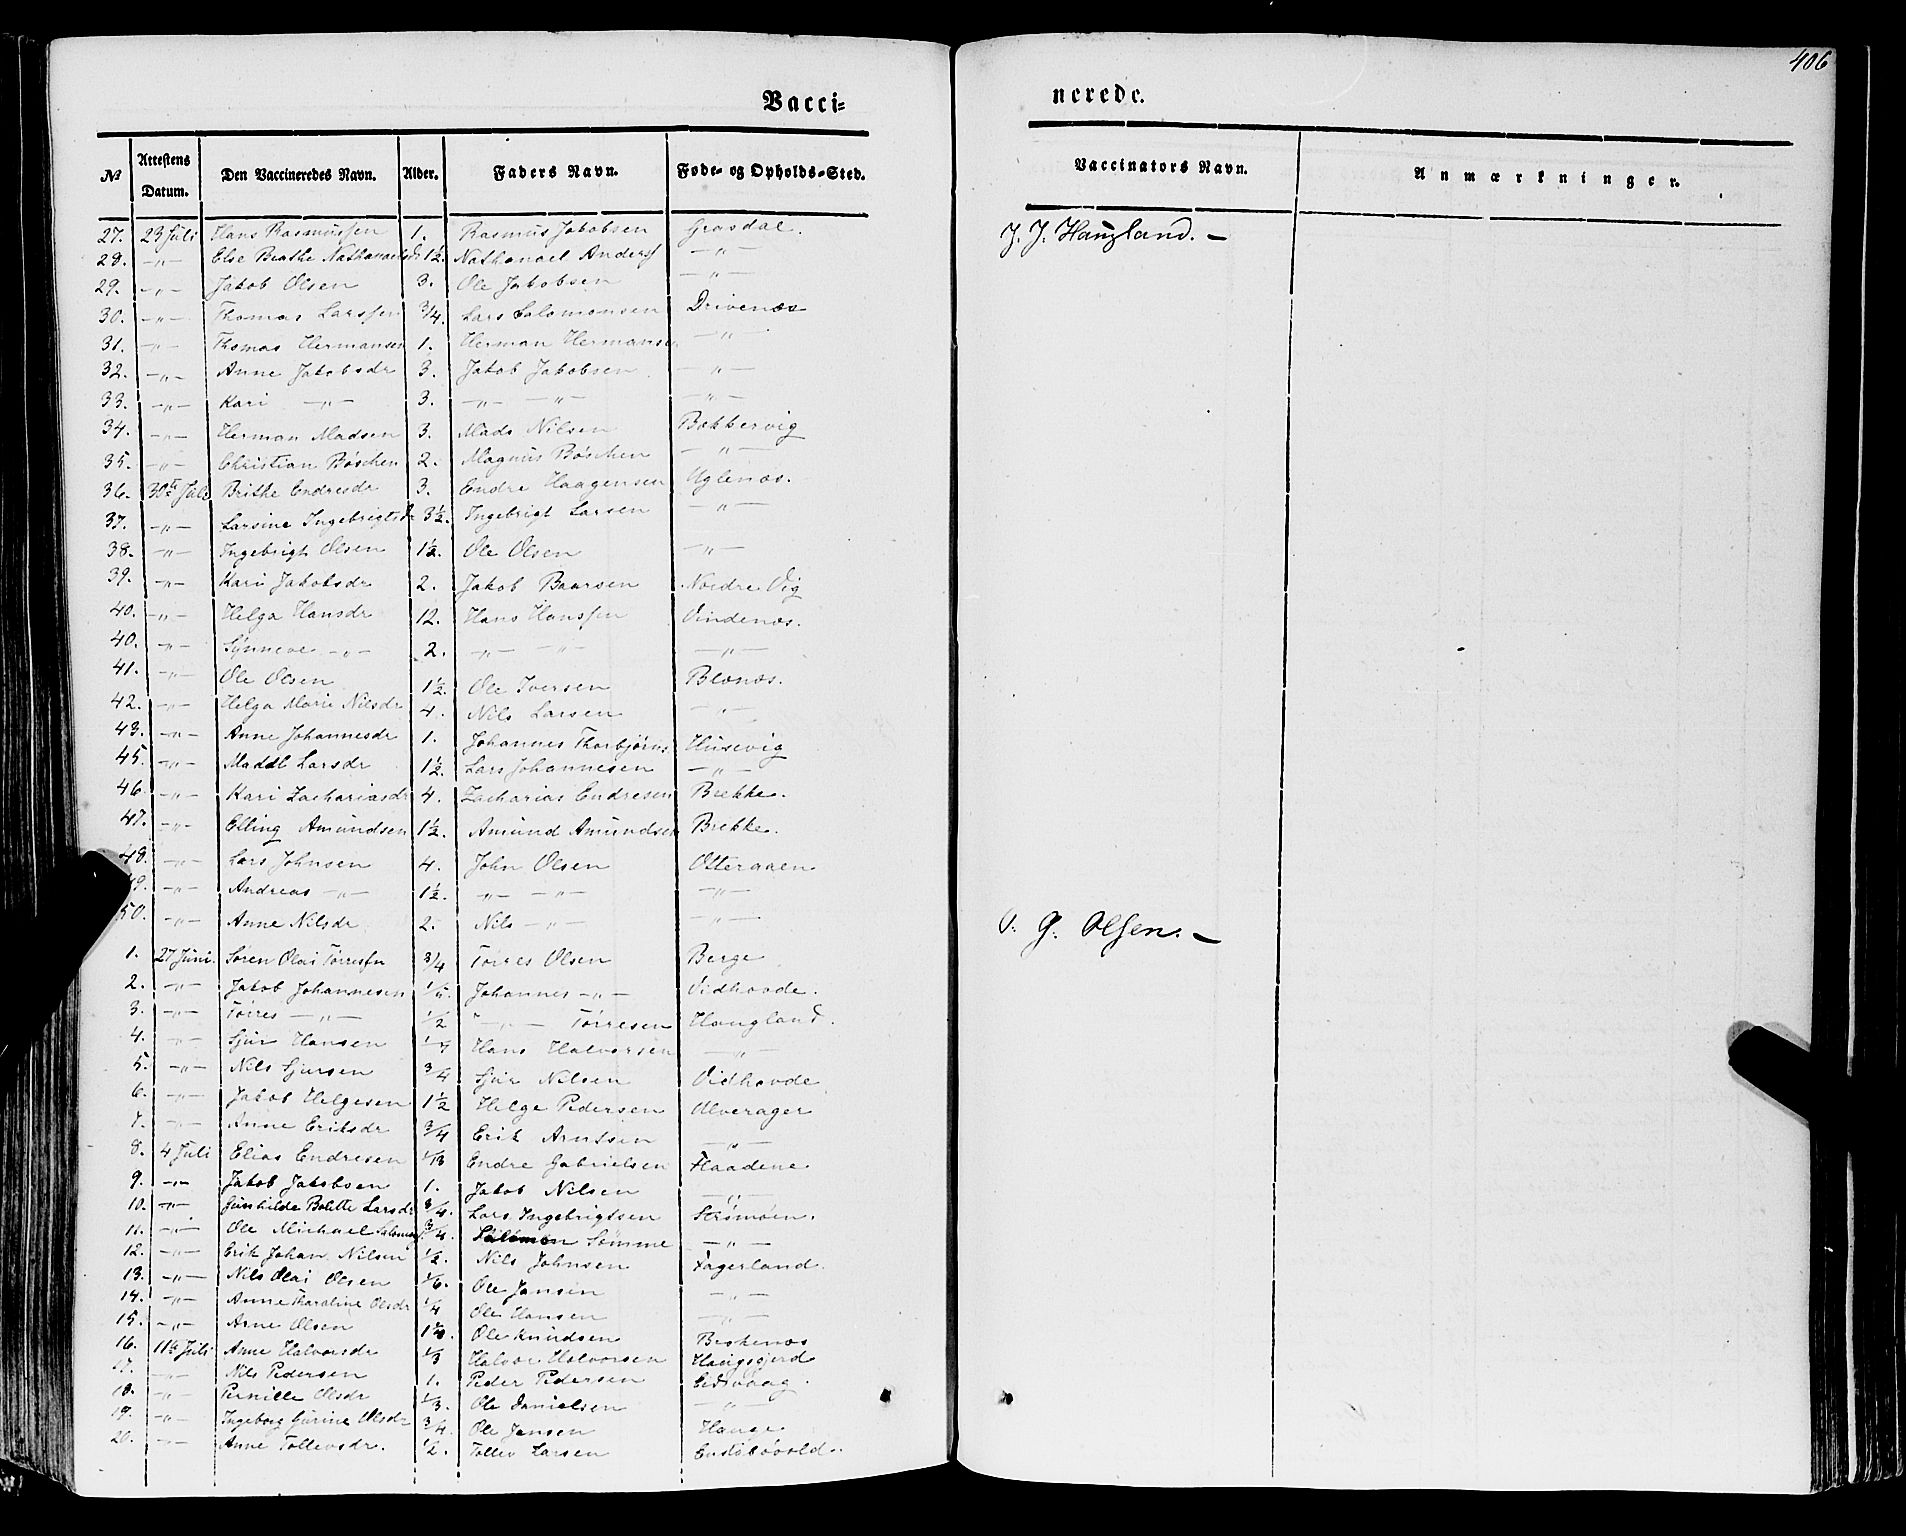 406
Vacci=
nerede.
No Attestens Datum. Den Vaccineredes Navn. Alder. Faders Navn. Føde- og Opholds-Sted. Vaccinators Navn. Anmærkninger.
27. 23 Juli Hans Rasmussen 1. Rasmus Jakobsen Grasdal. J. J. Haugland. —
28. —„— Else Beathe Nathanaelsd 1½ Nathanael Anders —„—
29. —„— Jakob Olsen 3. Ole Jakobsen —„—
30. —„— Thomas Larssen 3/4. Lars Salomonsen Drivenæs
31. —„— Thomas Hermansen 1. Herman Hermansen —„—
32. —„— Anne Jakobsdr 3. Jakob Jakobsen —„—
33. —„— Kari —„— 3. —„— —„— —„—
34. —„— Herman Madsen 3. Mads Nilsen Bakkervig
35. —„— Christian Bøschen 2. Magnus Bøschen —„—
36. 30te Juli Brithe Endresdr 3. Endre Haagensen Uglenæs.
37. —„— Larsine Ingebrigtsdr 3½. Ingebrigt Larsen —„—
38. —„— Ingebrigt Olsen 1½. Ole Olsen —„—
39. —„— Kari Jakobsdr 2. Jakob Baarsen Nordre Vig
40. —„— Helga Hansdr 12. Hans Hanssen Vindenæs.
40. —„— Synneve —„— 2. —„— —„— —„—
41. —„— Ole Olsen 1½. Ole Iversen Blænæs.
42. —„— Helga Marie Nilsdr 4. Nils Larsen —„—
43. —„— Anne Johannesdr 1. Johannes Thorbjørns Husevig
45. —„— Madel Larsdr 1½. Lars Johannesen —„—
46. —„— Kari Zachariasdr 4. Zacharias Endresen Brekke.
47. —„— Elling Amundsen 1½. Amund Amundsen Brekke.
48. —„— Lars Johnsen 4. John Olsen Otteraaen
49. —„— Andreas —„— 1½. —„— —„— —„—
50. —„— Anne Nilsdr 2. Nils —„— —„—
1. 27 Juni. Søren Olai Tørresen 3/4 Tørres Olsen Berge O. G. Olsen. —
2. —„— Jakob Johannesen Johannes —„— Vidhovde.
3. —„— Tørres —„— 1/2 —„— Tørresen Haugland.
4. —„— Sjur Hansen 1/4 Hans Halvorsen —„—
5. —„— Nils Sjursen 3/4 Sjur Nilsen Vidhovde
6. —„— Jakob Helgesen 1½ Helge Pedersen Alverager
7. —„— Anne Eriksdr 3/4 Erik Arntsen —„—
8. 4 Juli Elias Endresen Endre Gabrielsen Flaadene.
9. —„— Jakob Jakobsen 1. Jakob Nilsen —„—
10. —„— Gunhilde Bolette Larsdr 3/4. Lars Ingebrigtsen Strømøen.
11. —„— Ole Michael Salomons 3/4. Salomon Sømme —„—
12. —„— Erik Johan Nilsen 1/2. Nils Johnsen Fagerland.
13. —„— Nils Olai Olsen 1/6. Ole Jansen —„—
14. —„— Anne Karoline Olsdr 1/4 Ole Hansen —„—
15. —„— Arne Olsen Ole Knudsen Beskenæs
16. 11te Juli Anne Halvorsdr 1/3 Halvor Halvorsen Haugsgjerd
17. —„— Nils Pedersen 1. Peder Pedersen Eidsvaag.
18. —„— Pernille Olsdr 1/3. Ole Danielsen —„—
19. —„— Ingeborg Gurine Olsdr 3/4. Ole Jensen Hauge
20. —„— Anne Tollevsdr. 1/2. Tollev Larsen